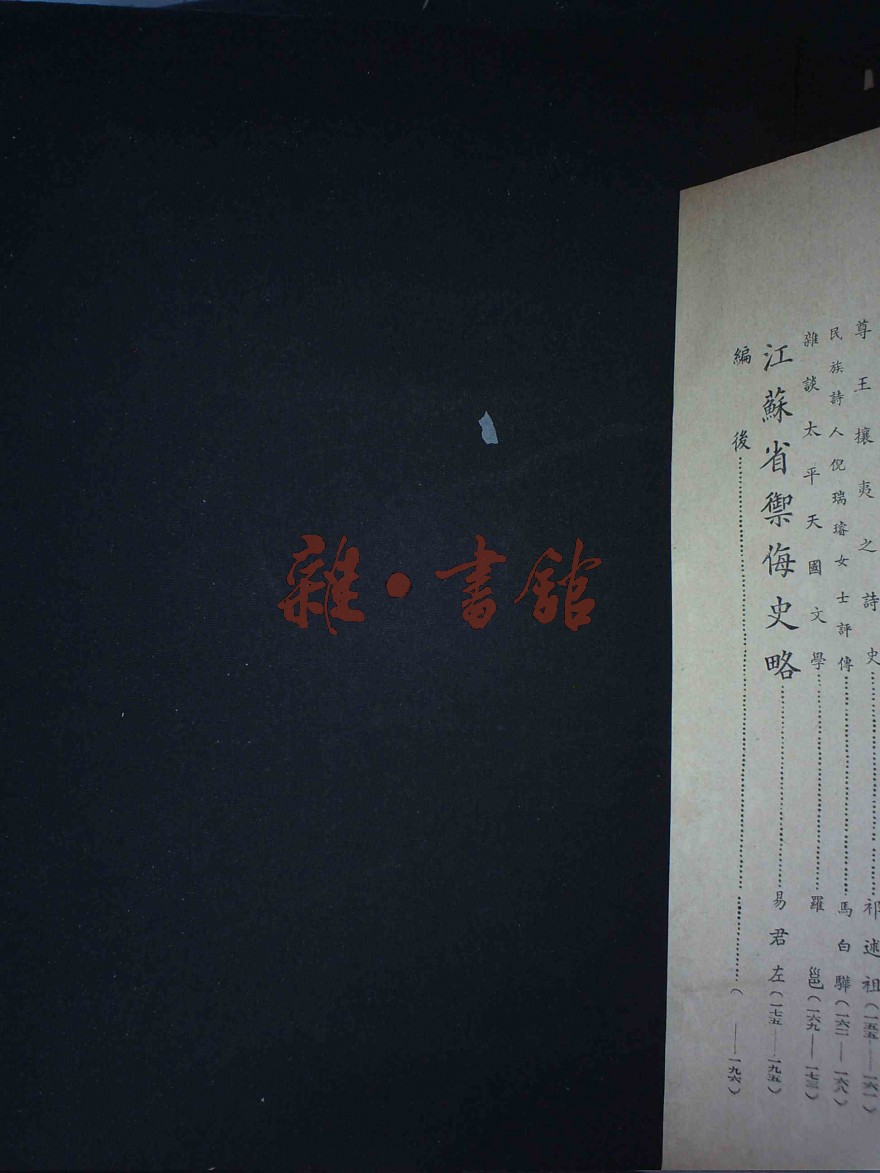 尊王攘夷之詩史……祁述祖(一五五——一六一)
民族詩人倪瑞璿女士評傳……馬白驊(一六二——一六八)
雜談太平天國文學……羅邕(一六九——一七三)
江蘇省禦侮史略……易君左(一七五——一九五)
編後……(——一九六)
雜·書館